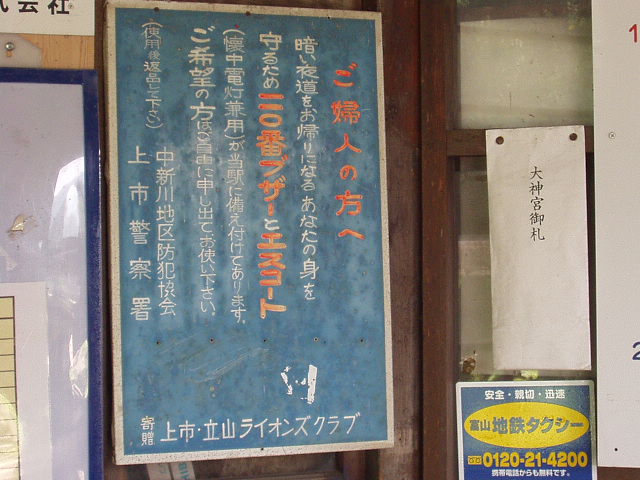 式会社
ご婦人の方へ
暗い夜道をお帰りになるあなたの身を
守るため一一〇番ブザーとエスコート
(懐中電灯兼用)が当駅に備え付けてあります。
ご希望の方はご自由に申し出てお使い下さい。
(使用後返品して下さい)
中新川地区防犯協会
上市警察署
寄贈 上市・立山ライオンズクラブ
大神宮御札
安全・親切・迅速
富山地鉄タクシー
0120-21-4200
携帯電話からも無料です。
1
2